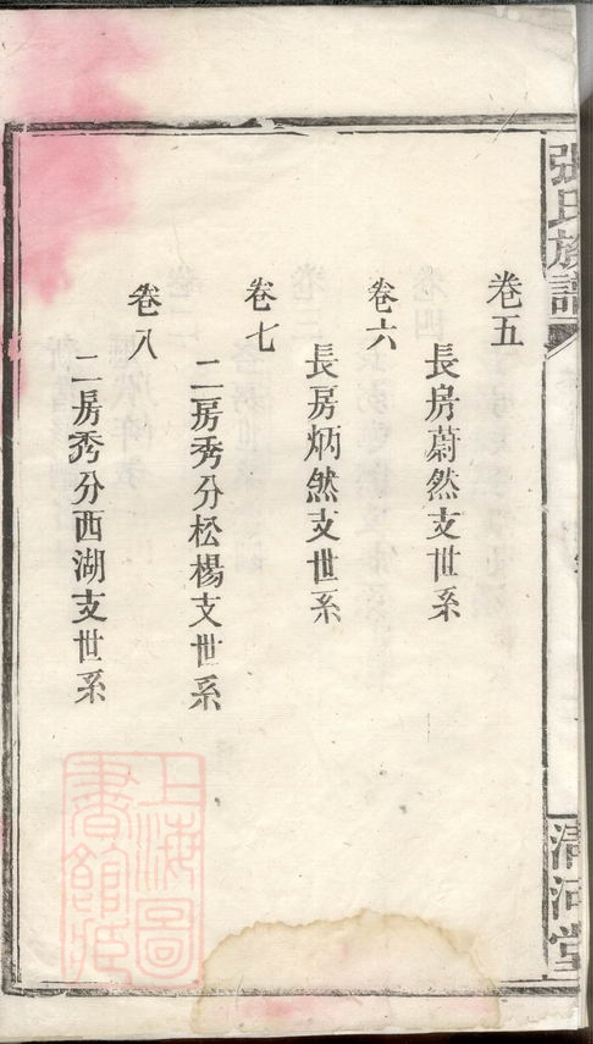 張氏族譜
卷五
長房蔚然支世系
卷六
長房炳然支世系
卷七
二房秀分松楊支世系
卷八
二房秀分西湖支世系
清河堂
上海圖
書館藏